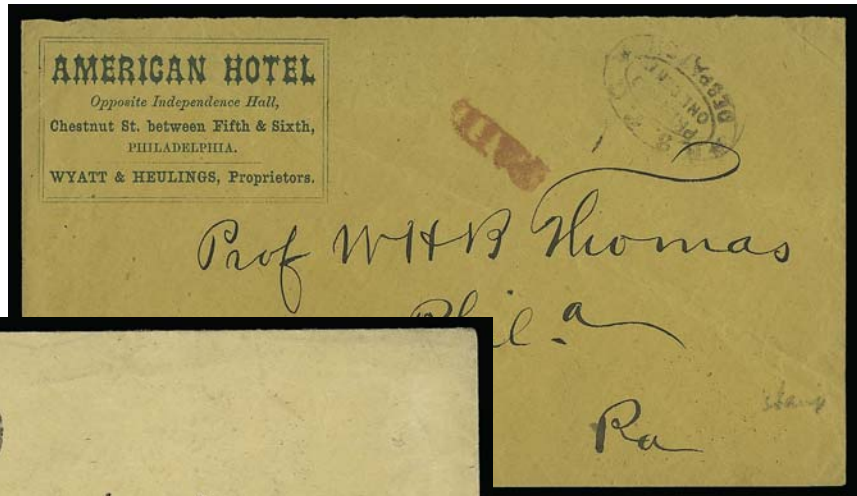 AMERICAN HOTEL
Opposite Independence Hall,
Chestnut St. between Fifth & Sixth,
PHILADELPHIA.
WYATT & HEULINGS, Proprietors.
PAID
DESPATCH
Prof W H B Thomas
Phil.a
Pa
stamp